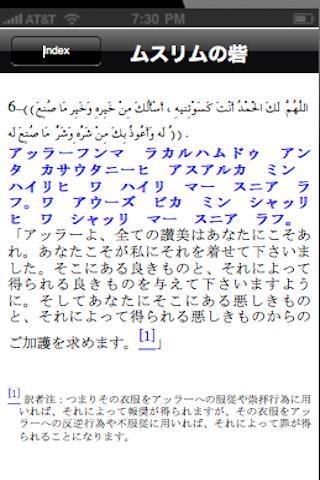 AT&T 7:30 PM
Index ムスリムの砦
6–((اللَّهُمَّ لَكَ الْحَمْدُ أَنْتَ كَسَوْتَنِيهِ ، أَسْأَلُكَ مِنْ خَيْرِهِ وَخَيْرِ مَا صُنِعَ
لَهُ وَأَعُوذُ بِكَ مِنْ شَرِّهِ وَشَرِّ مَا صُنِعَ لَه)).
アッラーフンマ ラカルハムドゥ アン
タ カサウタニーヒ アスアルカ ミン
ハイリヒ ワ ハイリ マー スニア ラ
フ。ワ アウーズ ビカ ミン シャッリ
ヒ ワ シャッリ マー スニア ラフ。
「アッラーよ、全ての讃美はあなたにこそあ
れ。あなたこそが私にそれを着せて下さいま
した。そこにある良きものと、それによって
得られる良きものを与えて下さいますよう
に。そしてあなたにそこにある悪しきもの
と、それによって得られる悪しきものからの
ご加護を求めます。[1]」
[1] 訳者注：つまりその衣服をアッラーへの服従や崇拝行為に用
いれば、それによって報奨が得られますが、その衣服をアッ
ラーへの反逆行為や不服従に用いれば、それによって罪が得
られることになります。